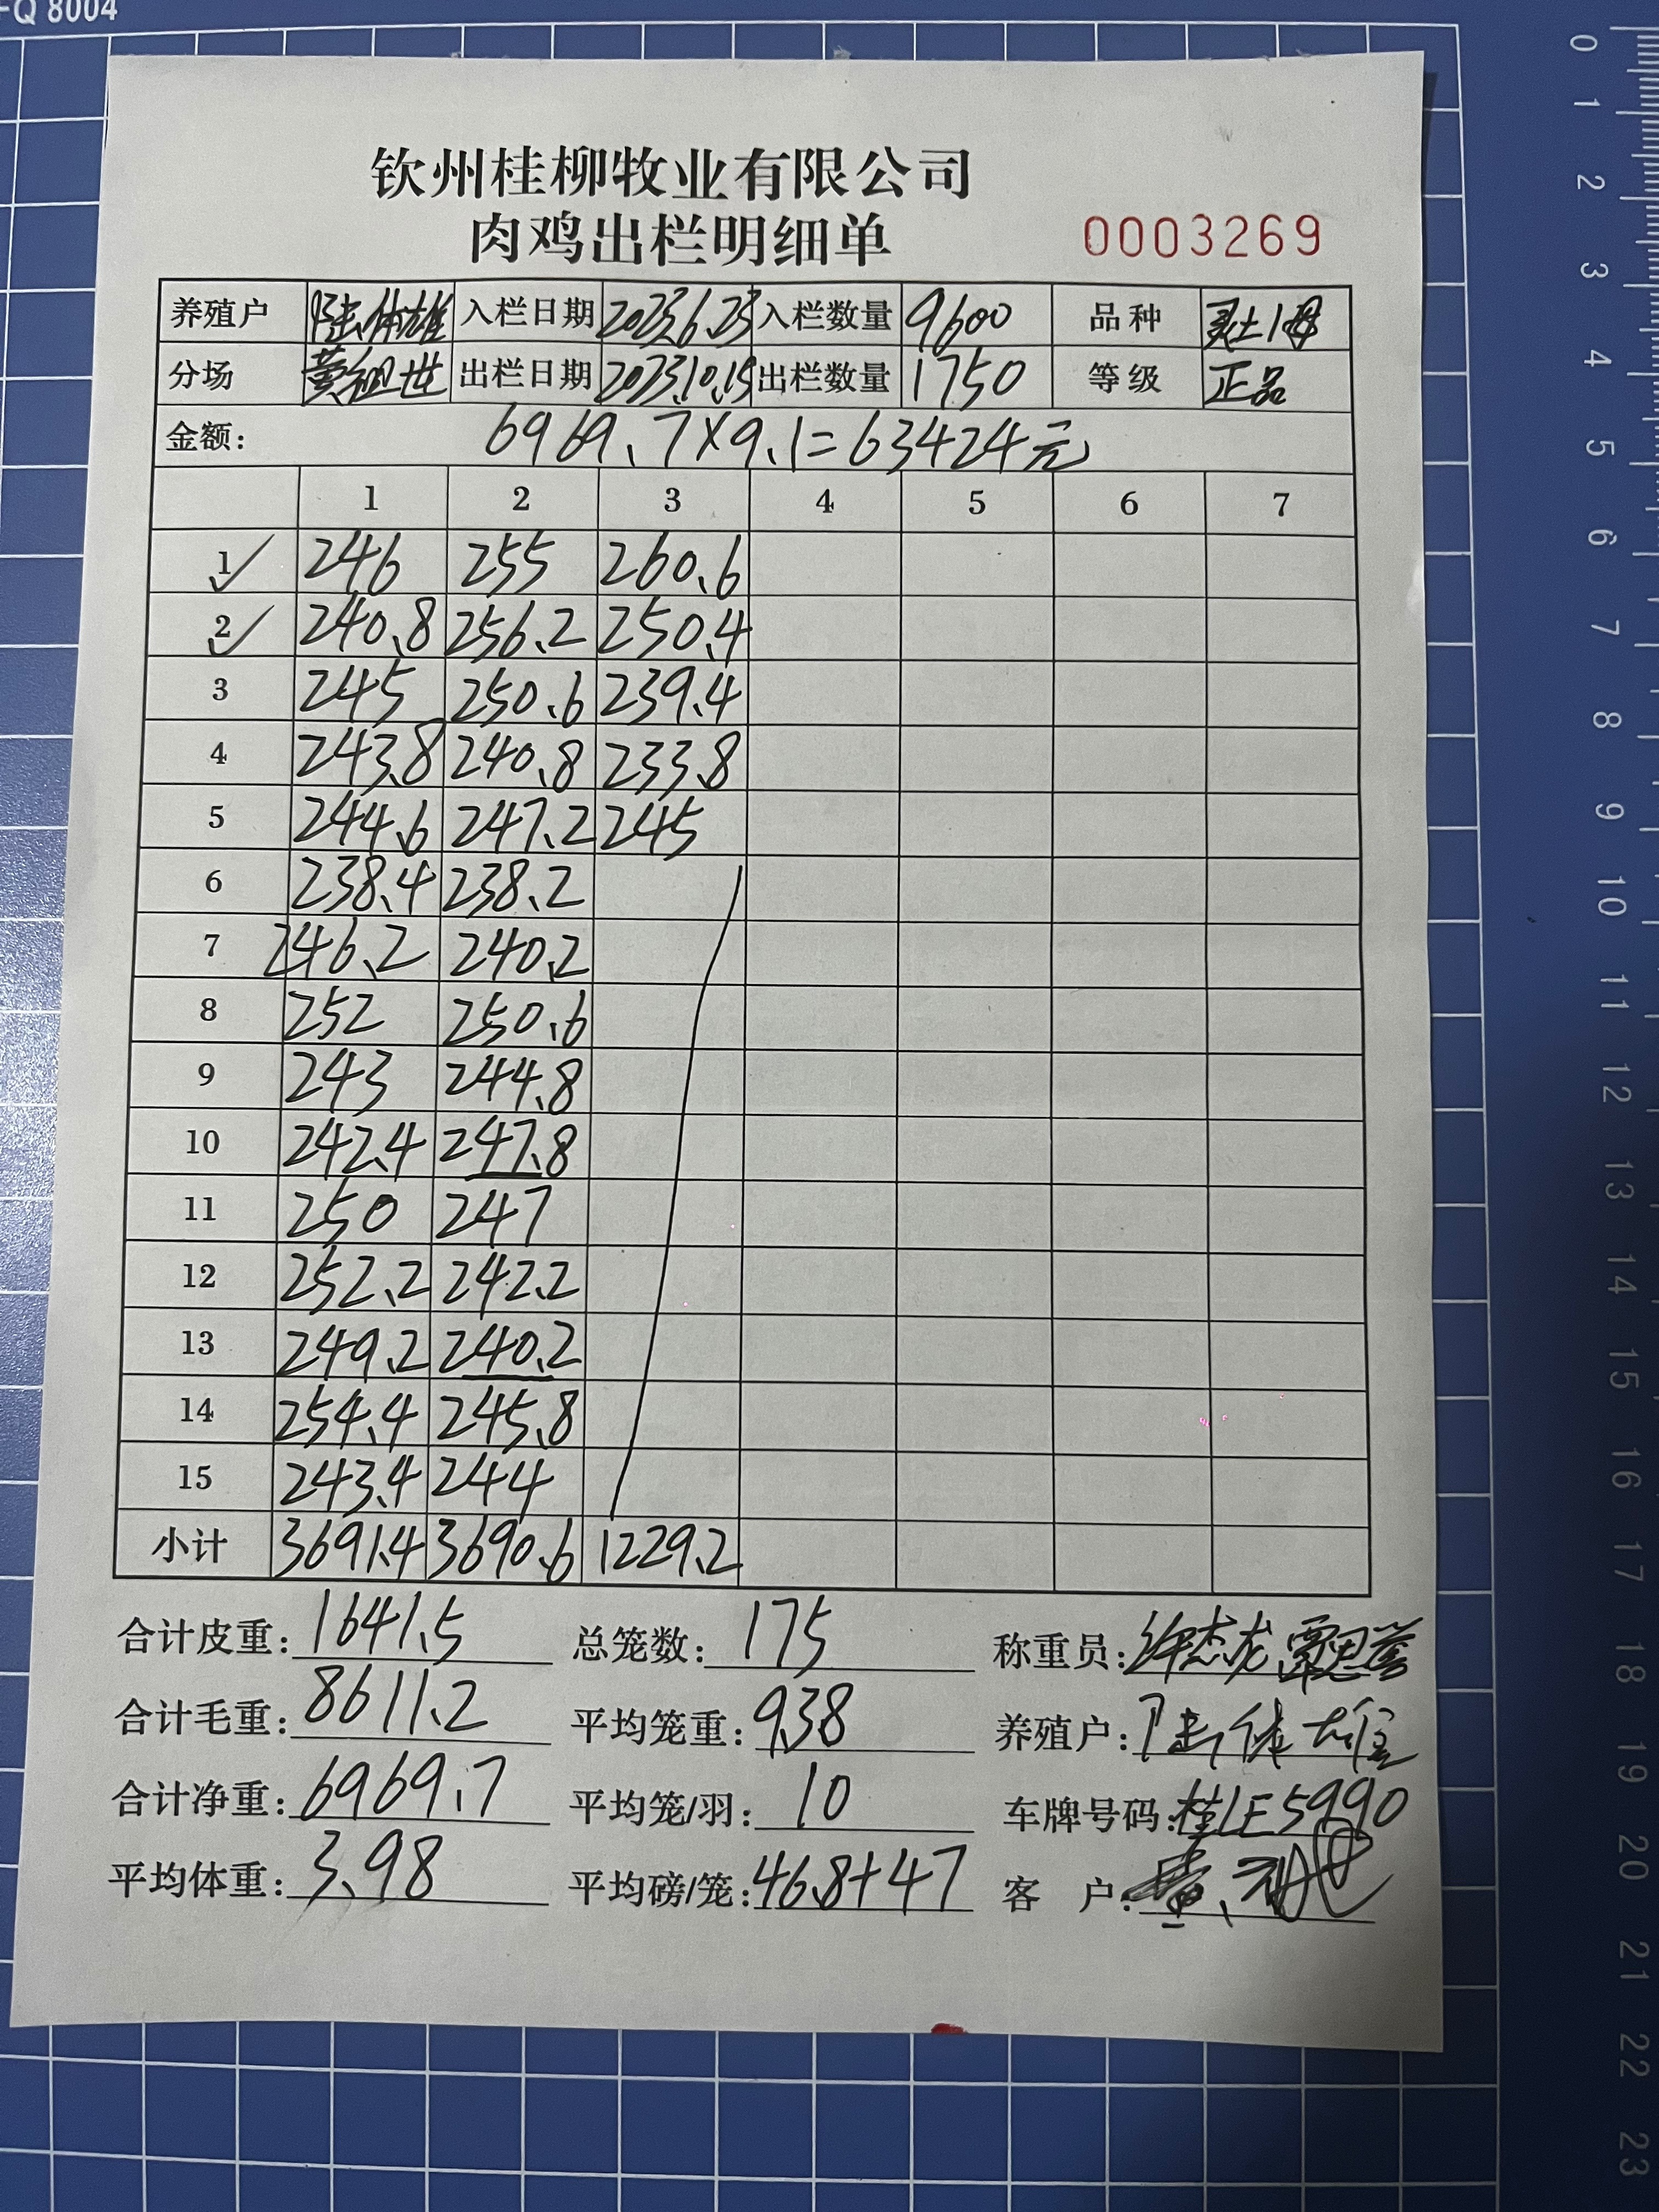 FQ 8004
钦州桂柳牧业有限公司
肉鸡出栏明细单 0003269
养殖户 入栏日期 2023.6.23 入栏数量 9600 品种 灵土1母
分场 黄祖世 出栏日期 2023.10.15 出栏数量 1750 等级 正品
金额: 6969.7×9.1=63424元
1 2 3 4 5 6 7
1 246 255 260.6
2 240.8 256.2 250.4
3 245 250.6 239.4
4 243.8 240.8 233.8
5 244.6 247.2 245
6 238.4 238.2
7 246.2 240.2
8 252 250.6
9 243 244.8
10 242.4 247.8
11 250 247
12 252.2 242.2
13 249.2 240.2
14 254.4 245.8
15 243.4 244
小计 3691.4 3690.6 1229.2
合计皮重: 1641.5 总笼数: 175 称重员: 许杰龙
合计毛重: 8611.2 平均笼重: 9.38 养殖户:
合计净重: 6969.7 平均笼/羽: 10 车牌号码: 桂LE5990
平均体重: 3.98 平均磅/笼: 46.8+47 客 户:
0
1
2
3
4
5
6
7
8
9
10
11
12
13
14
15
16
17
18
19
20
21
22
23